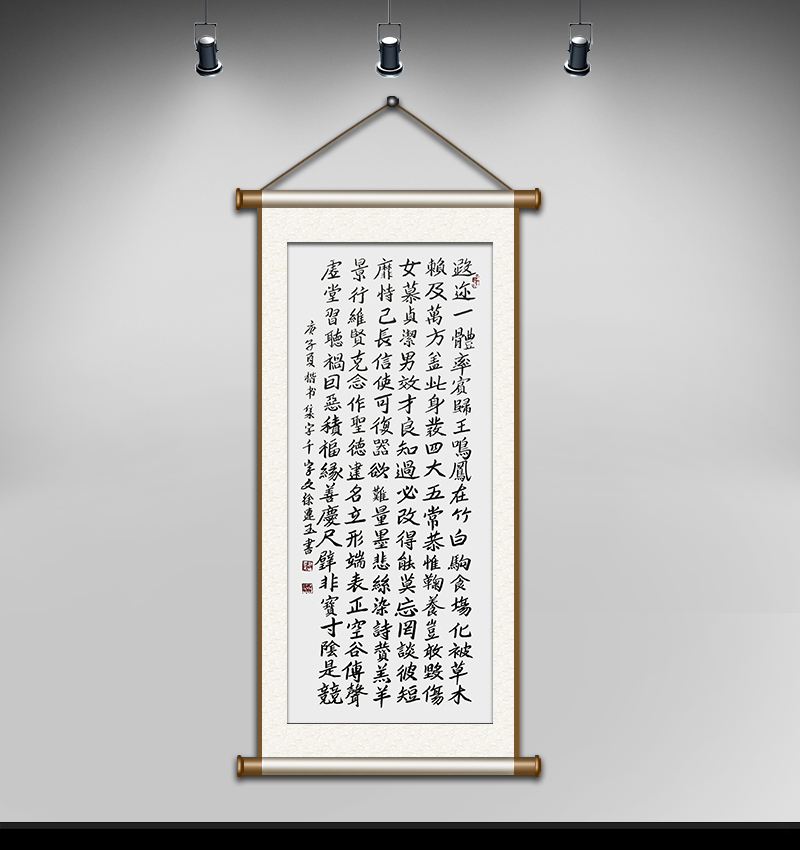 遐迩一體率賓歸王鳴鳳在竹白駒食場化被草木
賴及萬方盖此身髮四大五常恭惟鞠養豈敢毀傷
女慕貞潔男效才良知過必改得能莫忘罔談彼短
靡恃己長信使可復器欲難量墨悲絲染詩贊羔羊
景行維賢克念作聖德建名立形端表正空谷傳聲
虛堂習聽禍因惡積福緣善慶尺璧非寶寸陰是競
庚子夏楷书集字千字文徐連玉書